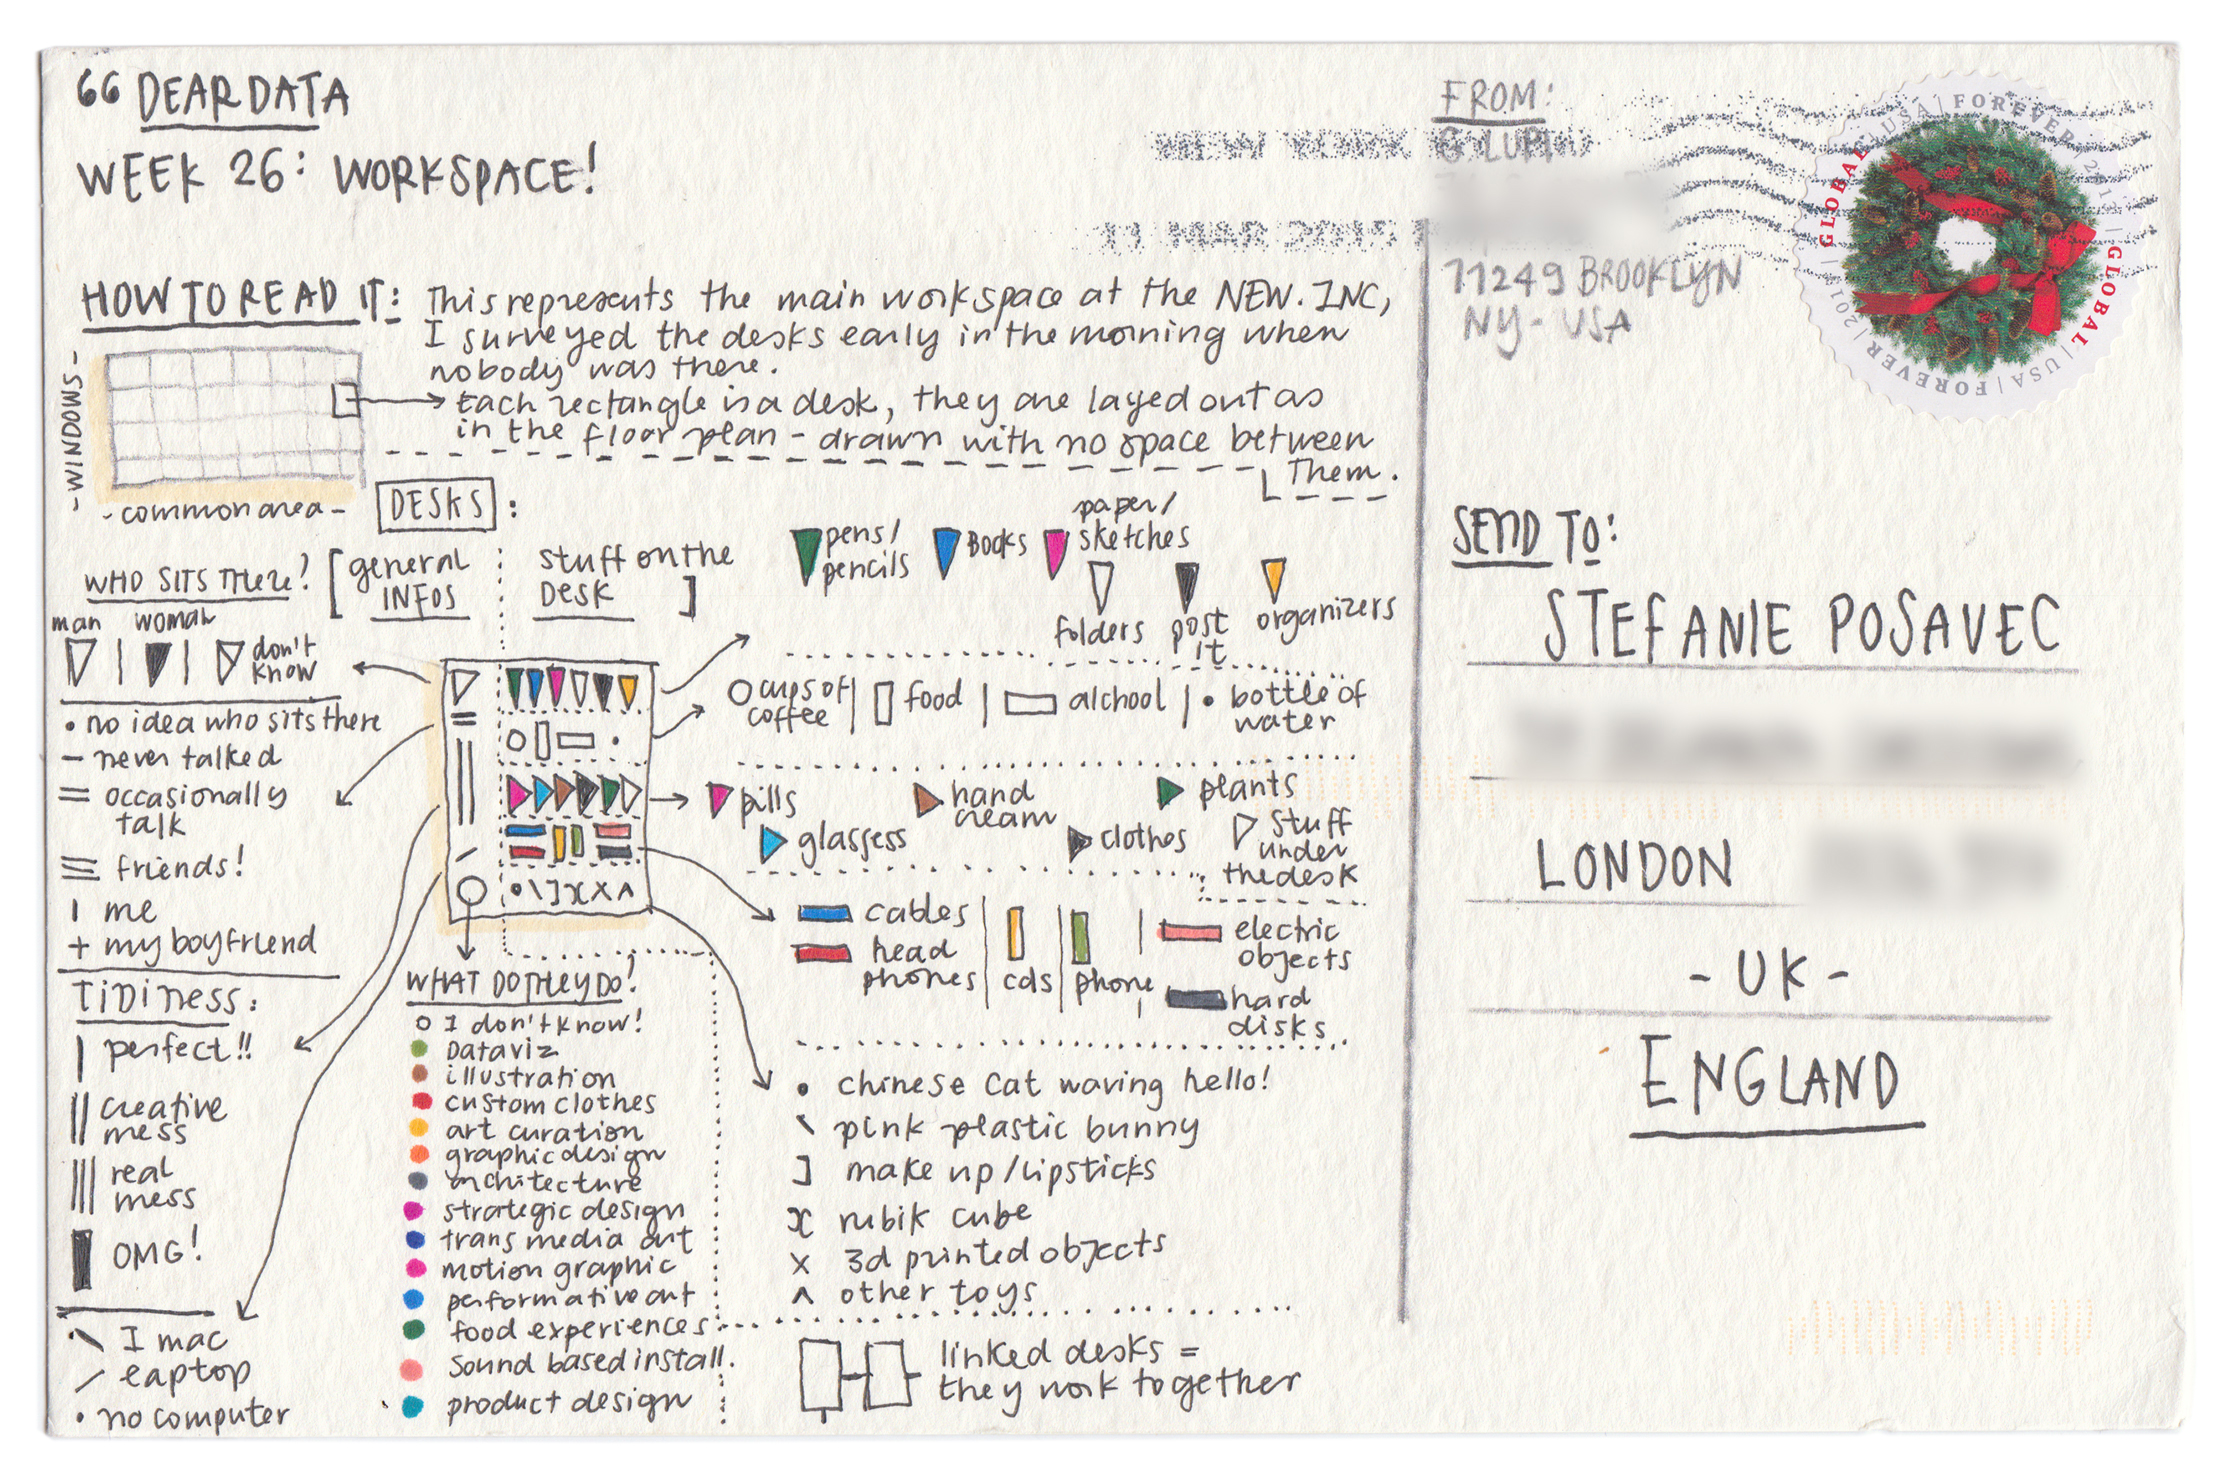 66 DEAR DATA
WEEK 26: WORKSPACE!
HOW TO READ IT:
This represents the main workspace at the NEW.INC,
I surveyed the desks early in the morning when
nobody was there.
Each rectangle is a desk, they are layed out as
in the floor plan - drawn with no space between
Them.
-WINDOWS-
-common area-
DESKS:
[general
INFOS
stuff on the
DESK]
WHO SITS THERE?
man
woman
don't
know
• no idea who sits there
— never talked
= occasionally
talk
≡ friends!
I me
+ my boyfriend
TIDINESS:
| perfect!!
|| creative
mess
||| real
mess
OMG!
\ I mac
/ laptop
• no computer
WHAT DO THEY DO?
o I don't know!
Dataviz
illustration
custom clothes
art curation
graphic design
architecture
strategic design
trans media art
motion graphic
performative art
food experiences
Sound based install.
product design
pens/
pencils
BOOKS
paper/
sketches
folders
post
it
organizers
cups of
coffee
food
alchool
• bottle of
water
pills
glassess
hand
cream
clothes
plants
stuff
under
the desk
cables
head
phones
cds
phone
electric
objects
hard
disks
• chinese cat waving hello!
\ pink plastic bunny
] make up/lipsticks
x rubik cube
x 3d printed objects
^ other toys
linked desks =
they work together
FROM:
G. LUPI
11249 BROOKLYN
NY - USA
NEW YORK
11 MAR 2015
GLOBAL | USA | FOREVER | 2013 | GLOBAL | USA | FOREVER | 2013 |
SEND TO:
STEFANIE POSAVEC
LONDON
- UK -
ENGLAND